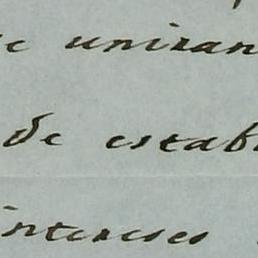 se uniran
de estab
intereses